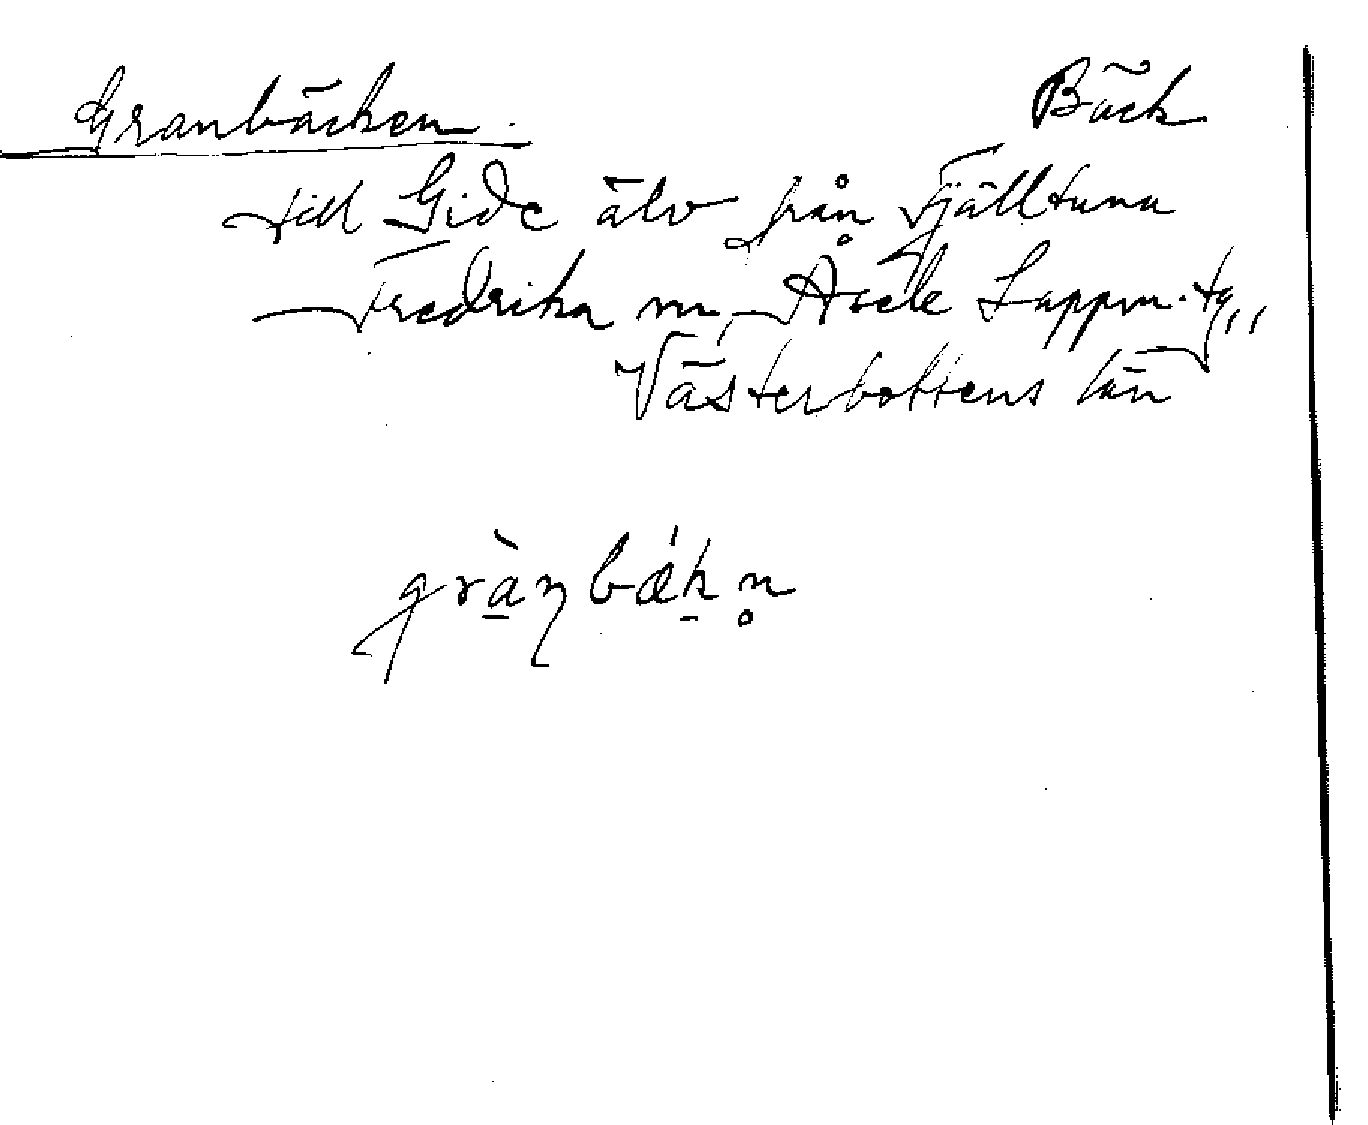 Granbäcken. Bäck
till Gide älv från Fjälltuna
Fredrika sn, Åsele Lappm. tg,,
Västerbottens län